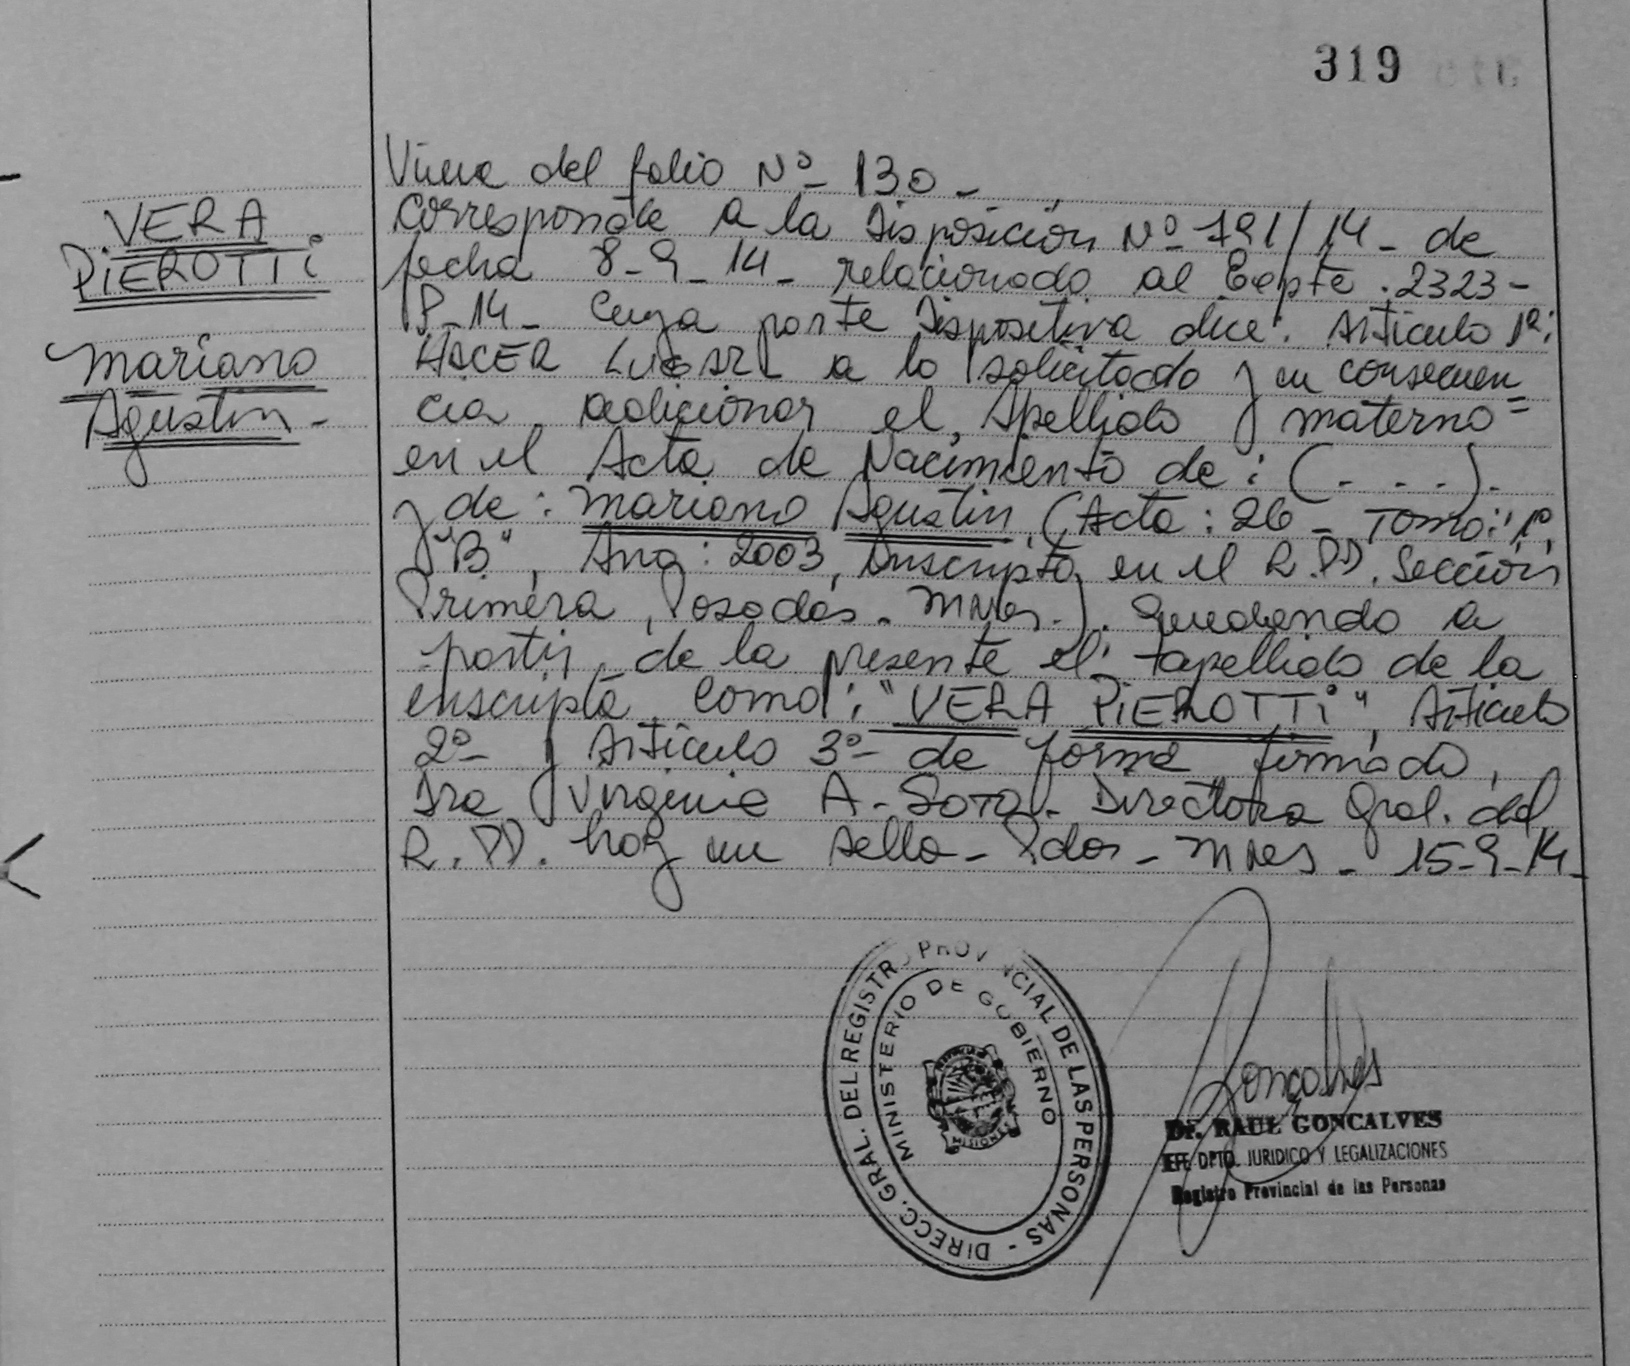 319
VERA
PiEROTTi
Mariano
Agustin -
Viene del folio Nº 130 -
Corresponde a la Disposición Nº 791/14 - de
fecha 8-9-14 - relacionado al Expte. 2323 -
P-14 - Cuya parte Dispositiva dice: Artículo 1º:
HACER LUGAR a lo solicitado y en consecuen
cia adicionar el Apellido materno =
en el Acta de Nacimiento de: (. . .).
y de: Mariano Agustin, (Acta: 26 - Tomo: 1º
"B", Año: 2003, Inscripta en el R.PP. Sección
Primera, Posadas. Mnes.). Quedando a
partir de la presente el apellido de la
inscripta como: "VERA PiEROTTi", Artículo
2º y Artículo 3º de forma firmado,
Dra Virginia A. Soto. Directora Gral. del
R.PP. hay un sello - Pdas - Mnes - 15-9-14 -
DIRECC. GRAL. DEL REGISTRO PROVINCIAL DE LAS PERSONAS -
MINISTERIO DE GOBIERNO
MISIONES
Goncalves
Dr. RAUL GONCALVES
JEFE DPTO. JURIDICO Y LEGALIZACIONES
Registro Provincial de las Personas